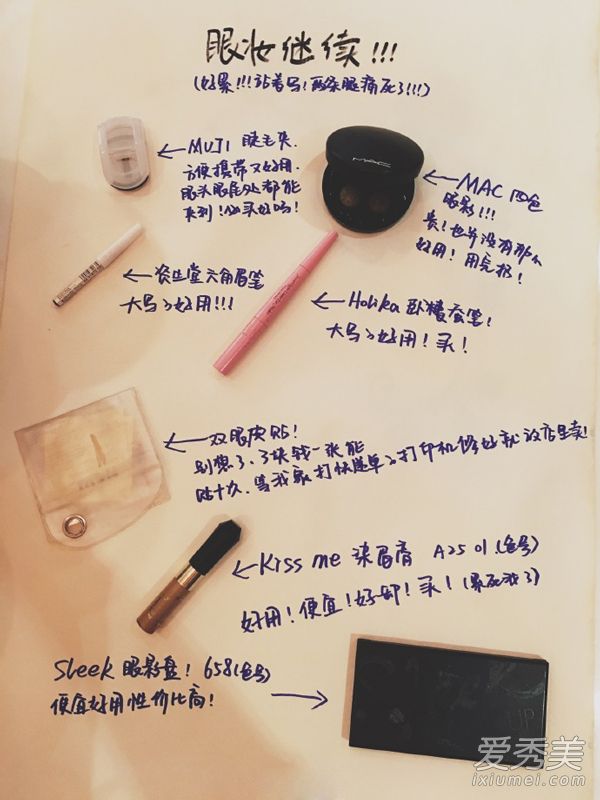 眼妆继续!!!
(好累!!!站着写!两条腿痛死了!!!)
← MUJI 睫毛夹.
方便携带又好用.
眼头眼尾处都能
夹到!快买好吗!
MAC
← MAC 四色
眼影!!!
贵!也并没有那么
好用!用完扔!
← 资生堂六角眉笔
大写的好用!!!
← Holika 卧蚕笔!
大写的好用!买!
← 双眼皮贴!
别想了、3块钱一张能
贴十次.等我家打快递单的打印机修好就放店里卖!
← Kiss me 染眉膏 A25 01(色号)
好用!便宜!好卸!买!(累死我了)
Sleek 眼影盘! 658(色号)
便宜好用性价比高! →
爱秀美
ixiumei.com